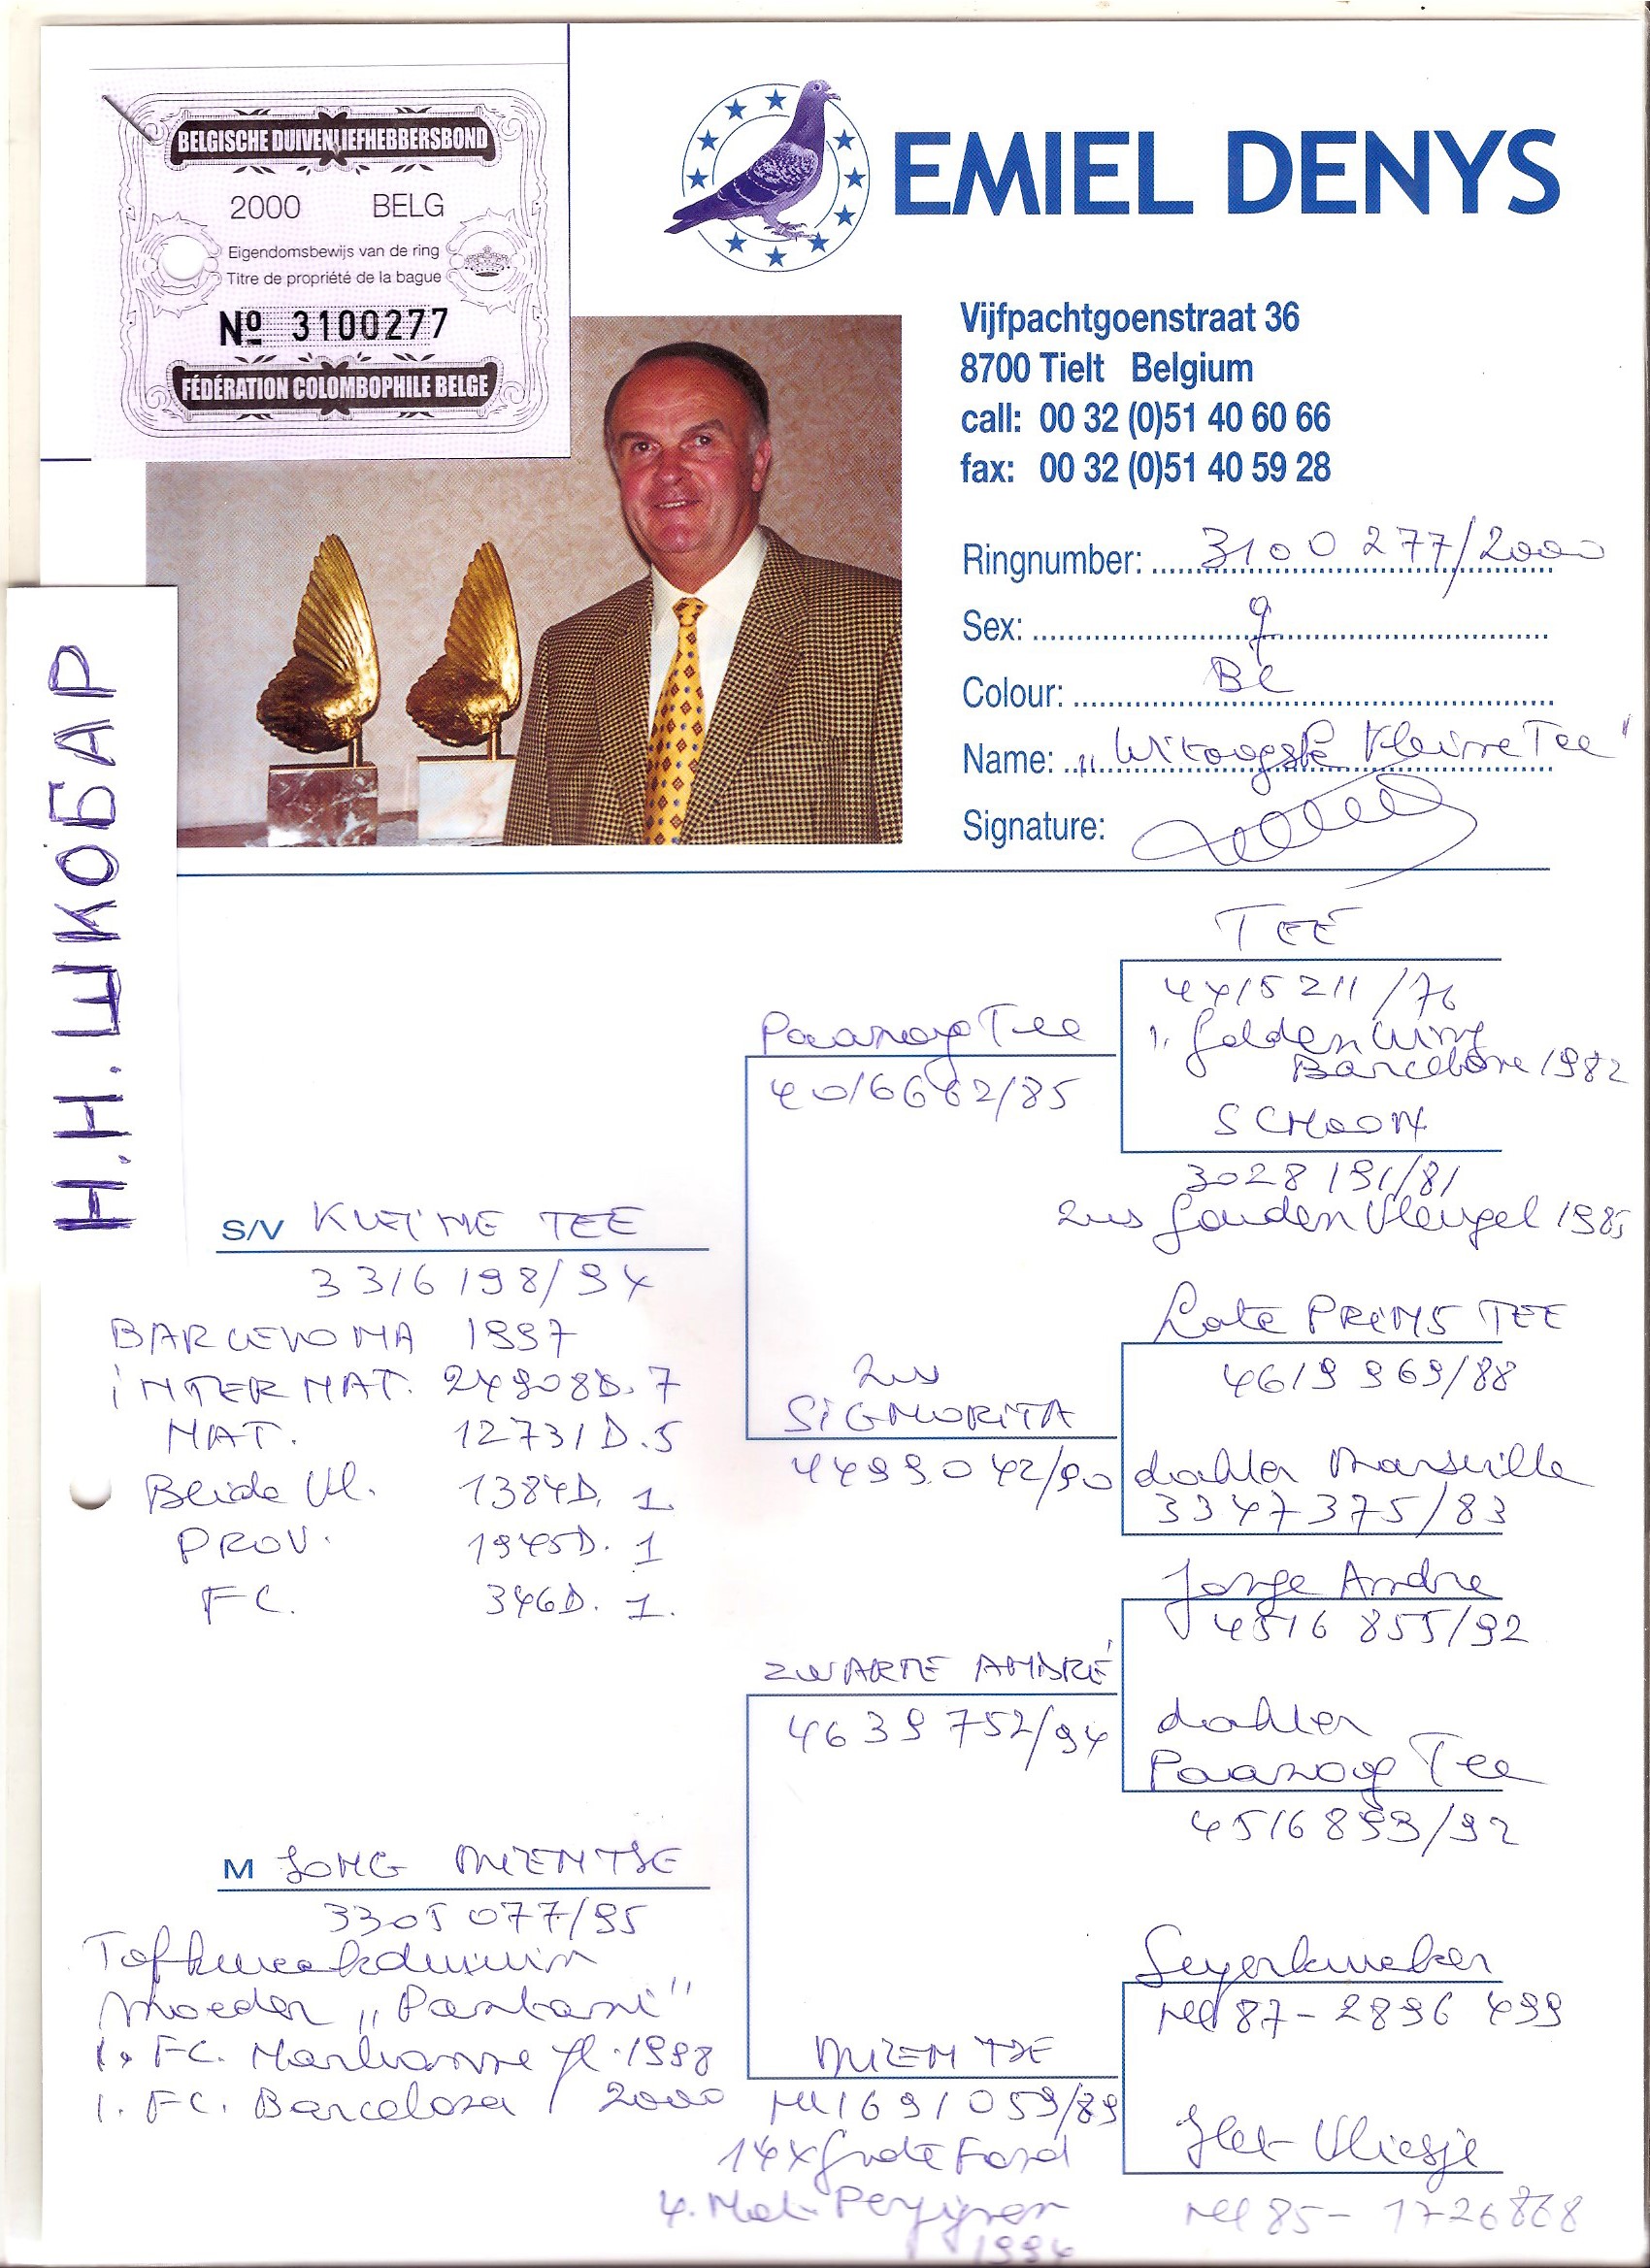 BELGISCHE DUIVENLIEFHEBBERSBOND
2000 BELG
Eigendomsbewijs van de ring
Titre de propriété de la bague
Nº 3100277
FÉDÉRATION COLOMBOPHILE BELGE
EMIEL DENYS
Vijfpachtgoenstraat 36
8700 Tielt Belgium
call: 00 32 (0)51 40 60 66
fax: 00 32 (0)51 40 59 28
Ringnumber: 3100277/2000
Sex: ♀
Colour: Bl
Name: „Witoogste Kleine Tee"
Signature:
Н.Н. ШКОБАР
S/V KLEINE TEE
3316198/94
BARCELONA 1997
INTERNAT. 24908D. 7
NAT. 12731D. 5
Beide Vl. 1384D. 1.
PROV. 1945D. 1
FC. 346D. 1.
M JONG MIENTJE
3305077/95
Topkweekduivin
Moeder „Pantani"
1. FC. Narbonne jl. 1998
1. FC. Barcelona / 2000
Paarsoog Tee
4016662/85
zus
SIGNORITA
4499042/90
ZWARTE ANDRÉ
4639752/94
MIENTJE
Nl 1691059/89
14x Grote Fond
4. Nat. Perpignan
1994
TEE
4415211/76
1. Golden Wing
Barcelona 1982
SCHOON
3028191/81
zus Gouden Vleugel 1985
Late PRINS TEE
4619969/88
dochter Marseille
3347375/83
Jonge Andre
4516855/92
dochter
Paarsoog Tee
4516893/92
Seyerkweker
Nl 87-2896499
Het Vliesje
Nl 85-1726868